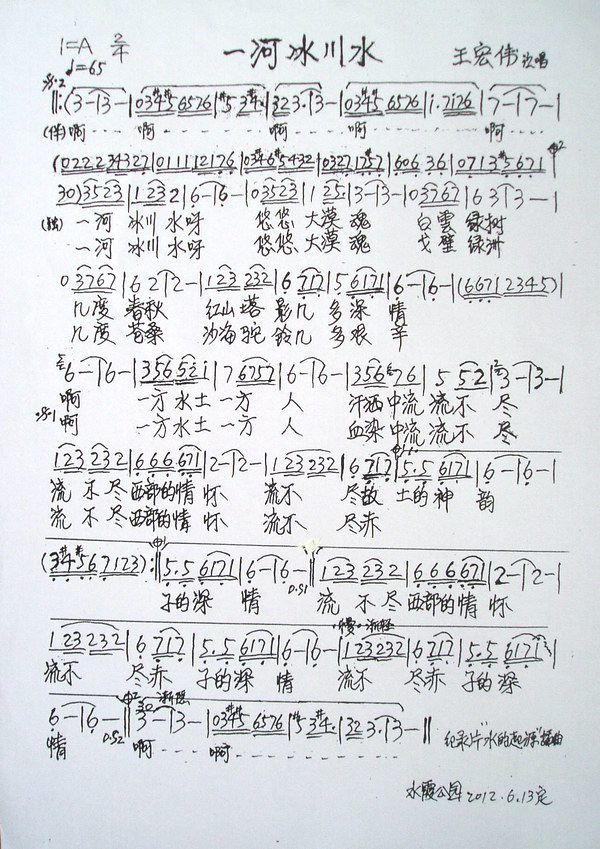 1=A 2/4 一河冰川水 王宏伟 演唱
♩=65
‖:(3-|3-|03#4#5 6576|#5 3#4.|32 3.|3-|03#4#5 6576|i. 7i76|7-|7-|
(伴)啊 啊 啊 啊 啊
(0222 34327|0111 12176|03#46 #5432|0327 17#57|606 36|0713 #5671|
30)3523|1 232|6-|6-|03523|1 25|3-|3-|03767|6 3|3-|
(独) 一河 冰川 水呀 悠悠 大漠 魂 白雲 绿树
一河 冰川 水呀 悠悠 大漠 魂 戈壁 绿洲
03767|6 2|2-|123 232|6 717|5 6171|6-|6-|(6671 2345)|
几度 春秋 红山 塔 影几 多深 情
几度 苍桑 沙海 驼 铃几 多艰 辛
6-|6-|356 52i|7 6752|6-|6-|356 76|5 52|3-|3-|
啊 一方 水土 一方 人 汗洒 中流 流不 尽
啊 一方 水土 一方 人 血染 中流 流不 尽
123 232|666 671|2-|2-|123 232|6 717|5.5 6171|6-|6-|
流 不 尽 西部的情 怀 流不 尽故 土的 神 韵
流 不 尽 西部的情 怀 流不 尽赤
(3#4#56 7123):‖5.5 6171|6-|6-‖123 232|666 671|2-|2-|
子的深 情 D.S1 流 不 尽 西部的情 怀
123 232|6 717|5.5 6171|6-|6-|123 232|6 717|5.5 6171|
流不 尽赤 子的深 情 流不 尽赤 子的 深
6-|6-‖3-|3-|03#4#5 6576|#5 3#4.|32 3.|3-‖
情 D.S2 啊 啊 纪录片"水的起源"插曲
水霞公园 2012.6.13定